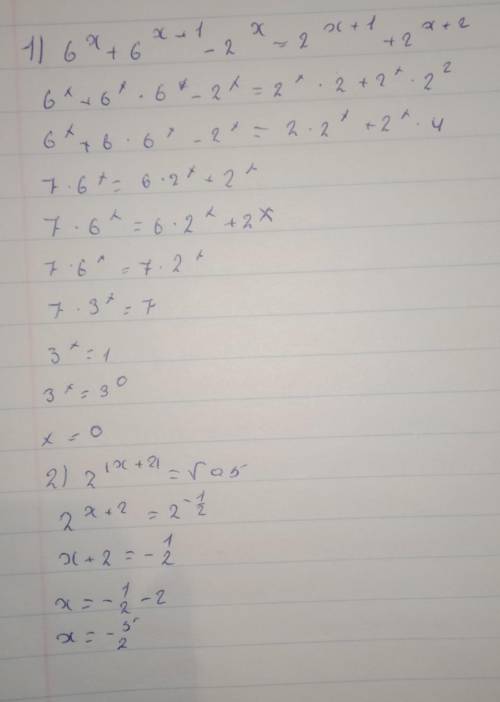 1) 6^x + 6^{x+1} - 2^x = 2^{x+1} + 2^{x+2}
6^x + 6^x · 6^x - 2^x = 2^x · 2 + 2^x · 2^2
6^x + 6 · 6^x - 2^x = 2 · 2^x + 2^x · 4
7 · 6^x = 6 · 2^x + 2^x
7 · 6^x = 6 · 2^x + 2^x
7 · 6^x = 7 · 2^x
7 · 3^x = 7
3^x = 1
3^x = 3^0
x = 0
2) 2^{|x+2|} = √0,5
2^{x+2} = 2^{-1/2}
x + 2 = -1/2
x = -1/2 - 2
x = -5/2